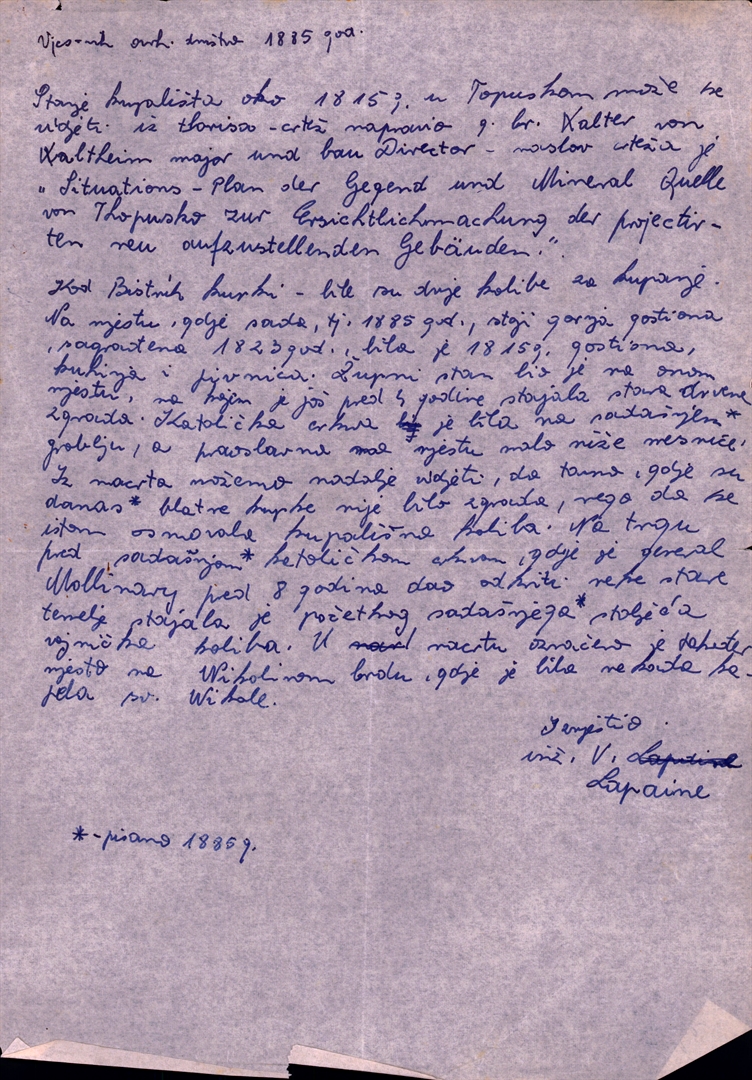 Vjesnik arh. društva 1885 god.
Stanje kupališta oko 1815 g. u Topuskom može se
vidjeti iz tlorisa - crtež napravio g. br. Kalter von
Kaltheim major und bau Director - naslov crteža je
„Situations - Plan der Gegend und Mineral Quelle
von Thopusko zur Ersichtlichmachung der projectir-
ten neu aufzustellenden Gebäuden."
Kod Bistrih kupki - bile su dvije kolibe za kupanje.
Na mjestu, gdje sada, tj. 1885 god., stoji gornja gostiona
, sagrađena 1823 god., bila je 1815 g. gostiona,
kuhinja i pivnica. Župni stan bio je na onom
mjestu, na kojem je još pred 4 godine stajala stara drvena
zgrada. Katolička crkva je bila na sadašnjem*
groblju, a pravoslavna na mjestu malo niže mesnice.
Iz nacrta možemo nadalje vidjeti, da tamo, gdje su
danas* blatne kupke nije bilo zgrada, nego da se
istom osnovala kupališna koliba. Na trgu
pred sadašnjom* katoličkom crkvom, gdje je general
Mollinary pred 8 godina dao odkriti neke stare
temelje stajala je početkog sadašnjega* stoljeća
vojnička koliba. U nacrtu označeno je također
mjesto na Nikolinom brdu, gdje je bila nekoda ka-
pela sv. Nikole.
Izvjestio
inž. V. Lapaine
Lapaine
* - pisano 1885 g.